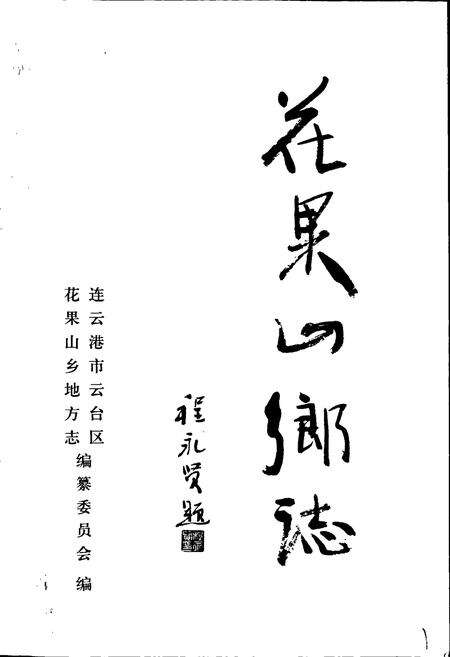 花果山鄉誌
程永贤题
连云港市云台区
花果山乡地方志
编纂委员会 编